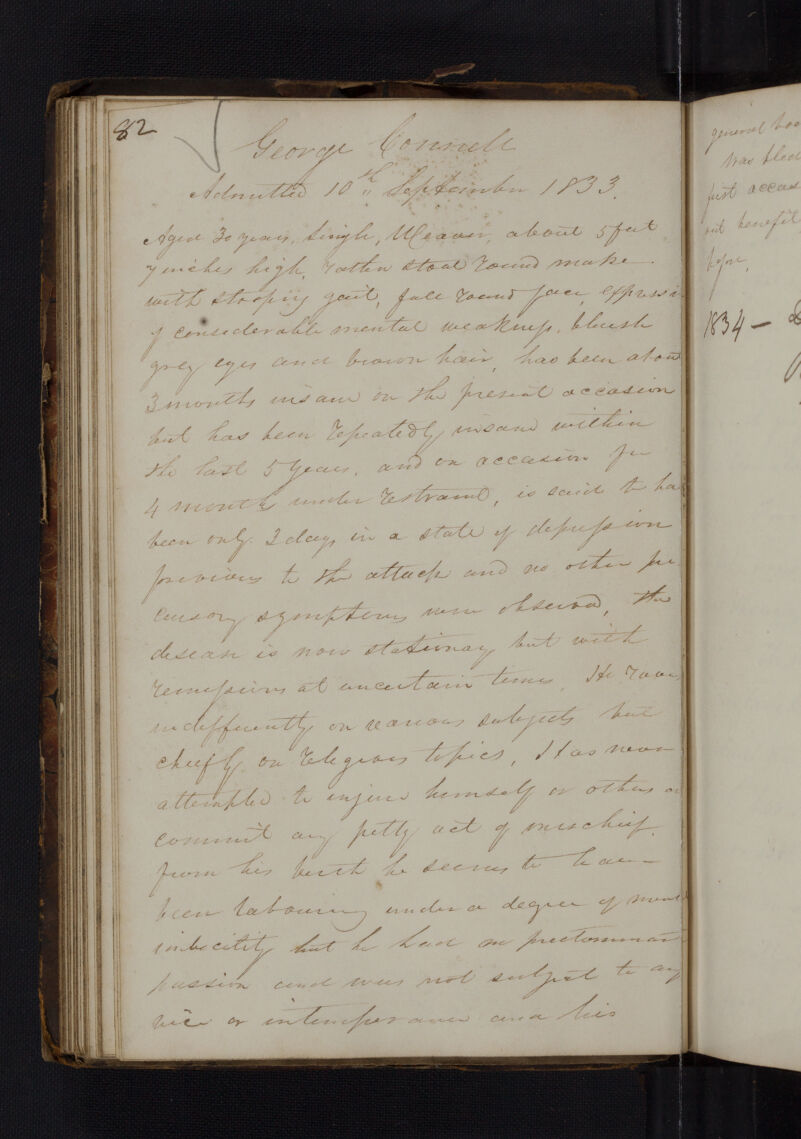 82
George Connell
Admitted 10th September 1833.
Aged 30 years, Single, Weaver, about 5 feet
7 inches high, rather stout round make
with stooping gait, full round face, expression
of considerable mental weakness, blueish
grey eyes and brown hair, has been about
3 months insane on the present occasion
but has been repeatedly insane within
the last 5 years, and on occasion for
4 months under restraint, is said to ha
been only 3 days in a state of depression
previous to the attack and no other pre
cursory symptoms were observed, the
disease is now stationary but with
remissions at uncertain times. He raves
indifferently on various subjects but
chiefly on religious topics, Has never
attempted to injure himself or others or
commit any petty act of mischief.
from his birth he seems to have
been labouring under a degree of mental
imbecility but he had no predominan
passion and was not subject to any
vice or intemperance and his
general
Was bled
first occas
out benefit
before,
1834 —